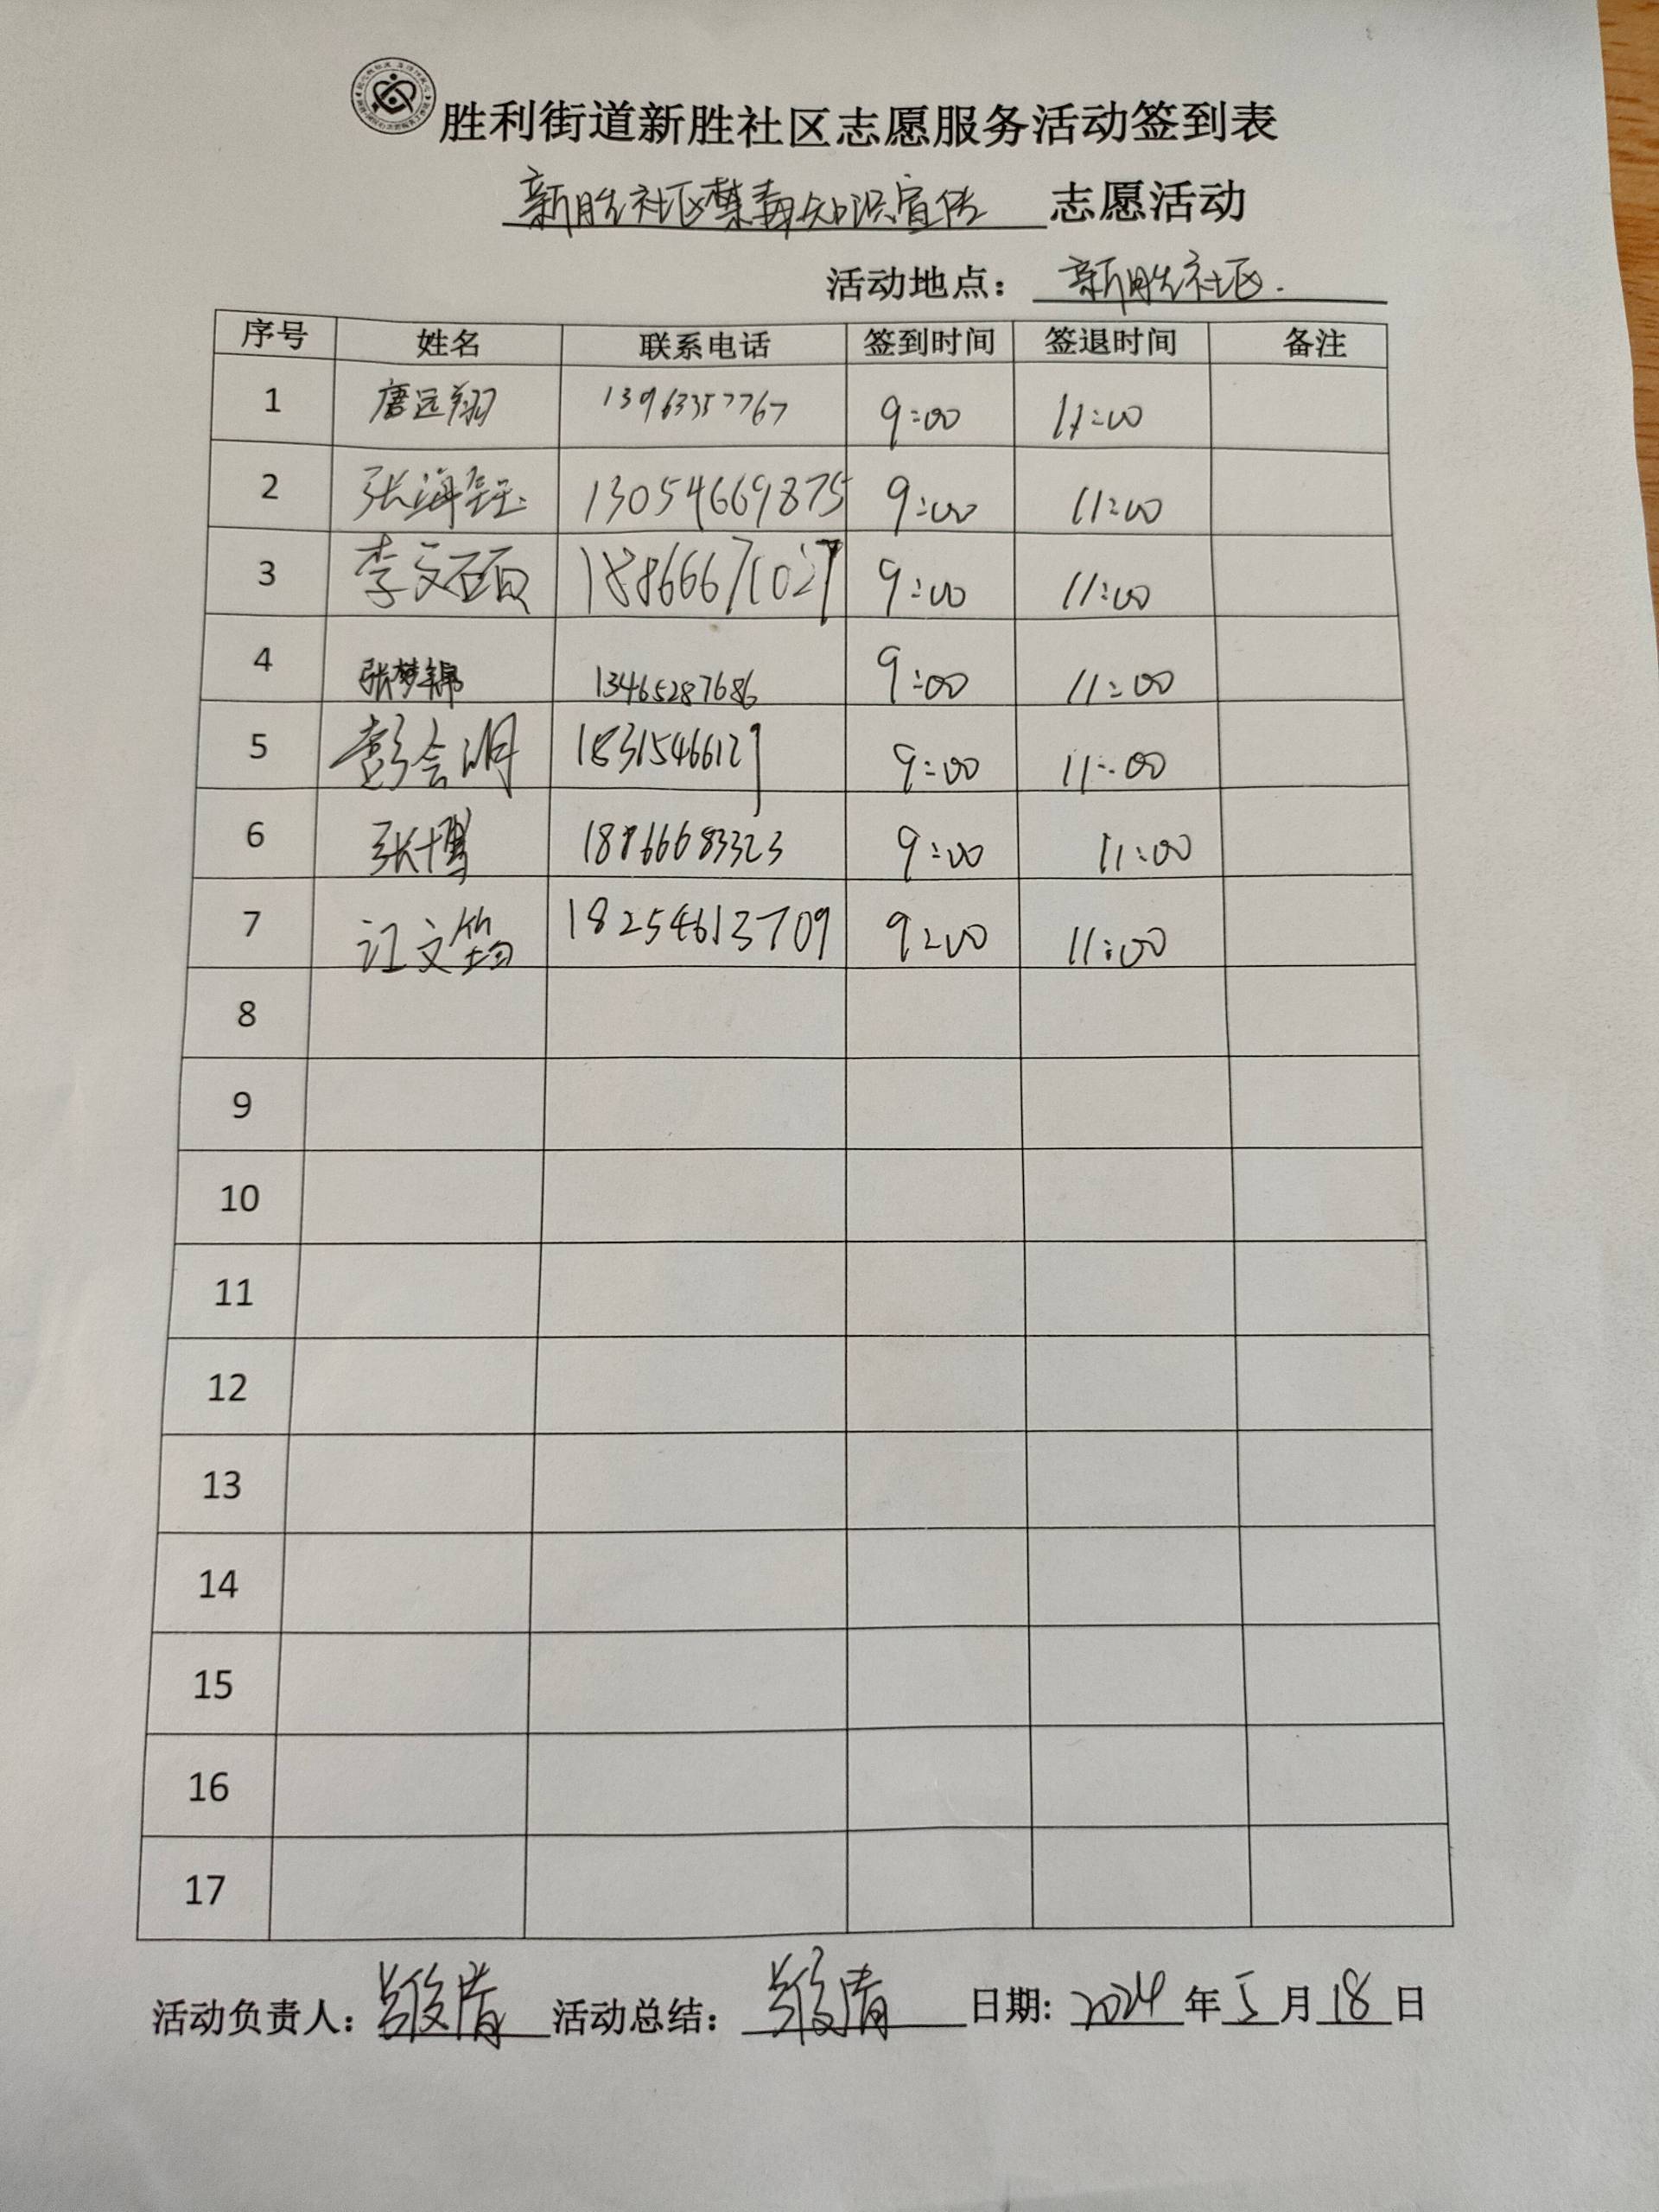 胜利街道新胜社区志愿服务活动签到表
新胜社区禁毒知识宣传 志愿活动
活动地点: 新胜社区.
序号 姓名 联系电话 签到时间 签退时间 备注
1 唐远翔 13963357767 9:00 11:00
2 张海钰 13054669875 9:00 11:00
3 李文硕 18866671027 9:00 11:00
4 张梦锦 13465287686 9:00 11:00
5 彭会明 18315466127 9:00 11:00
6 张博 18866683323 9:00 11:00
7 江文筠 18254613709 9:00 11:00
8
9
10
11
12
13
14
15
16
17
活动负责人: 活动总结: 日期: 2024 年 5 月 18 日